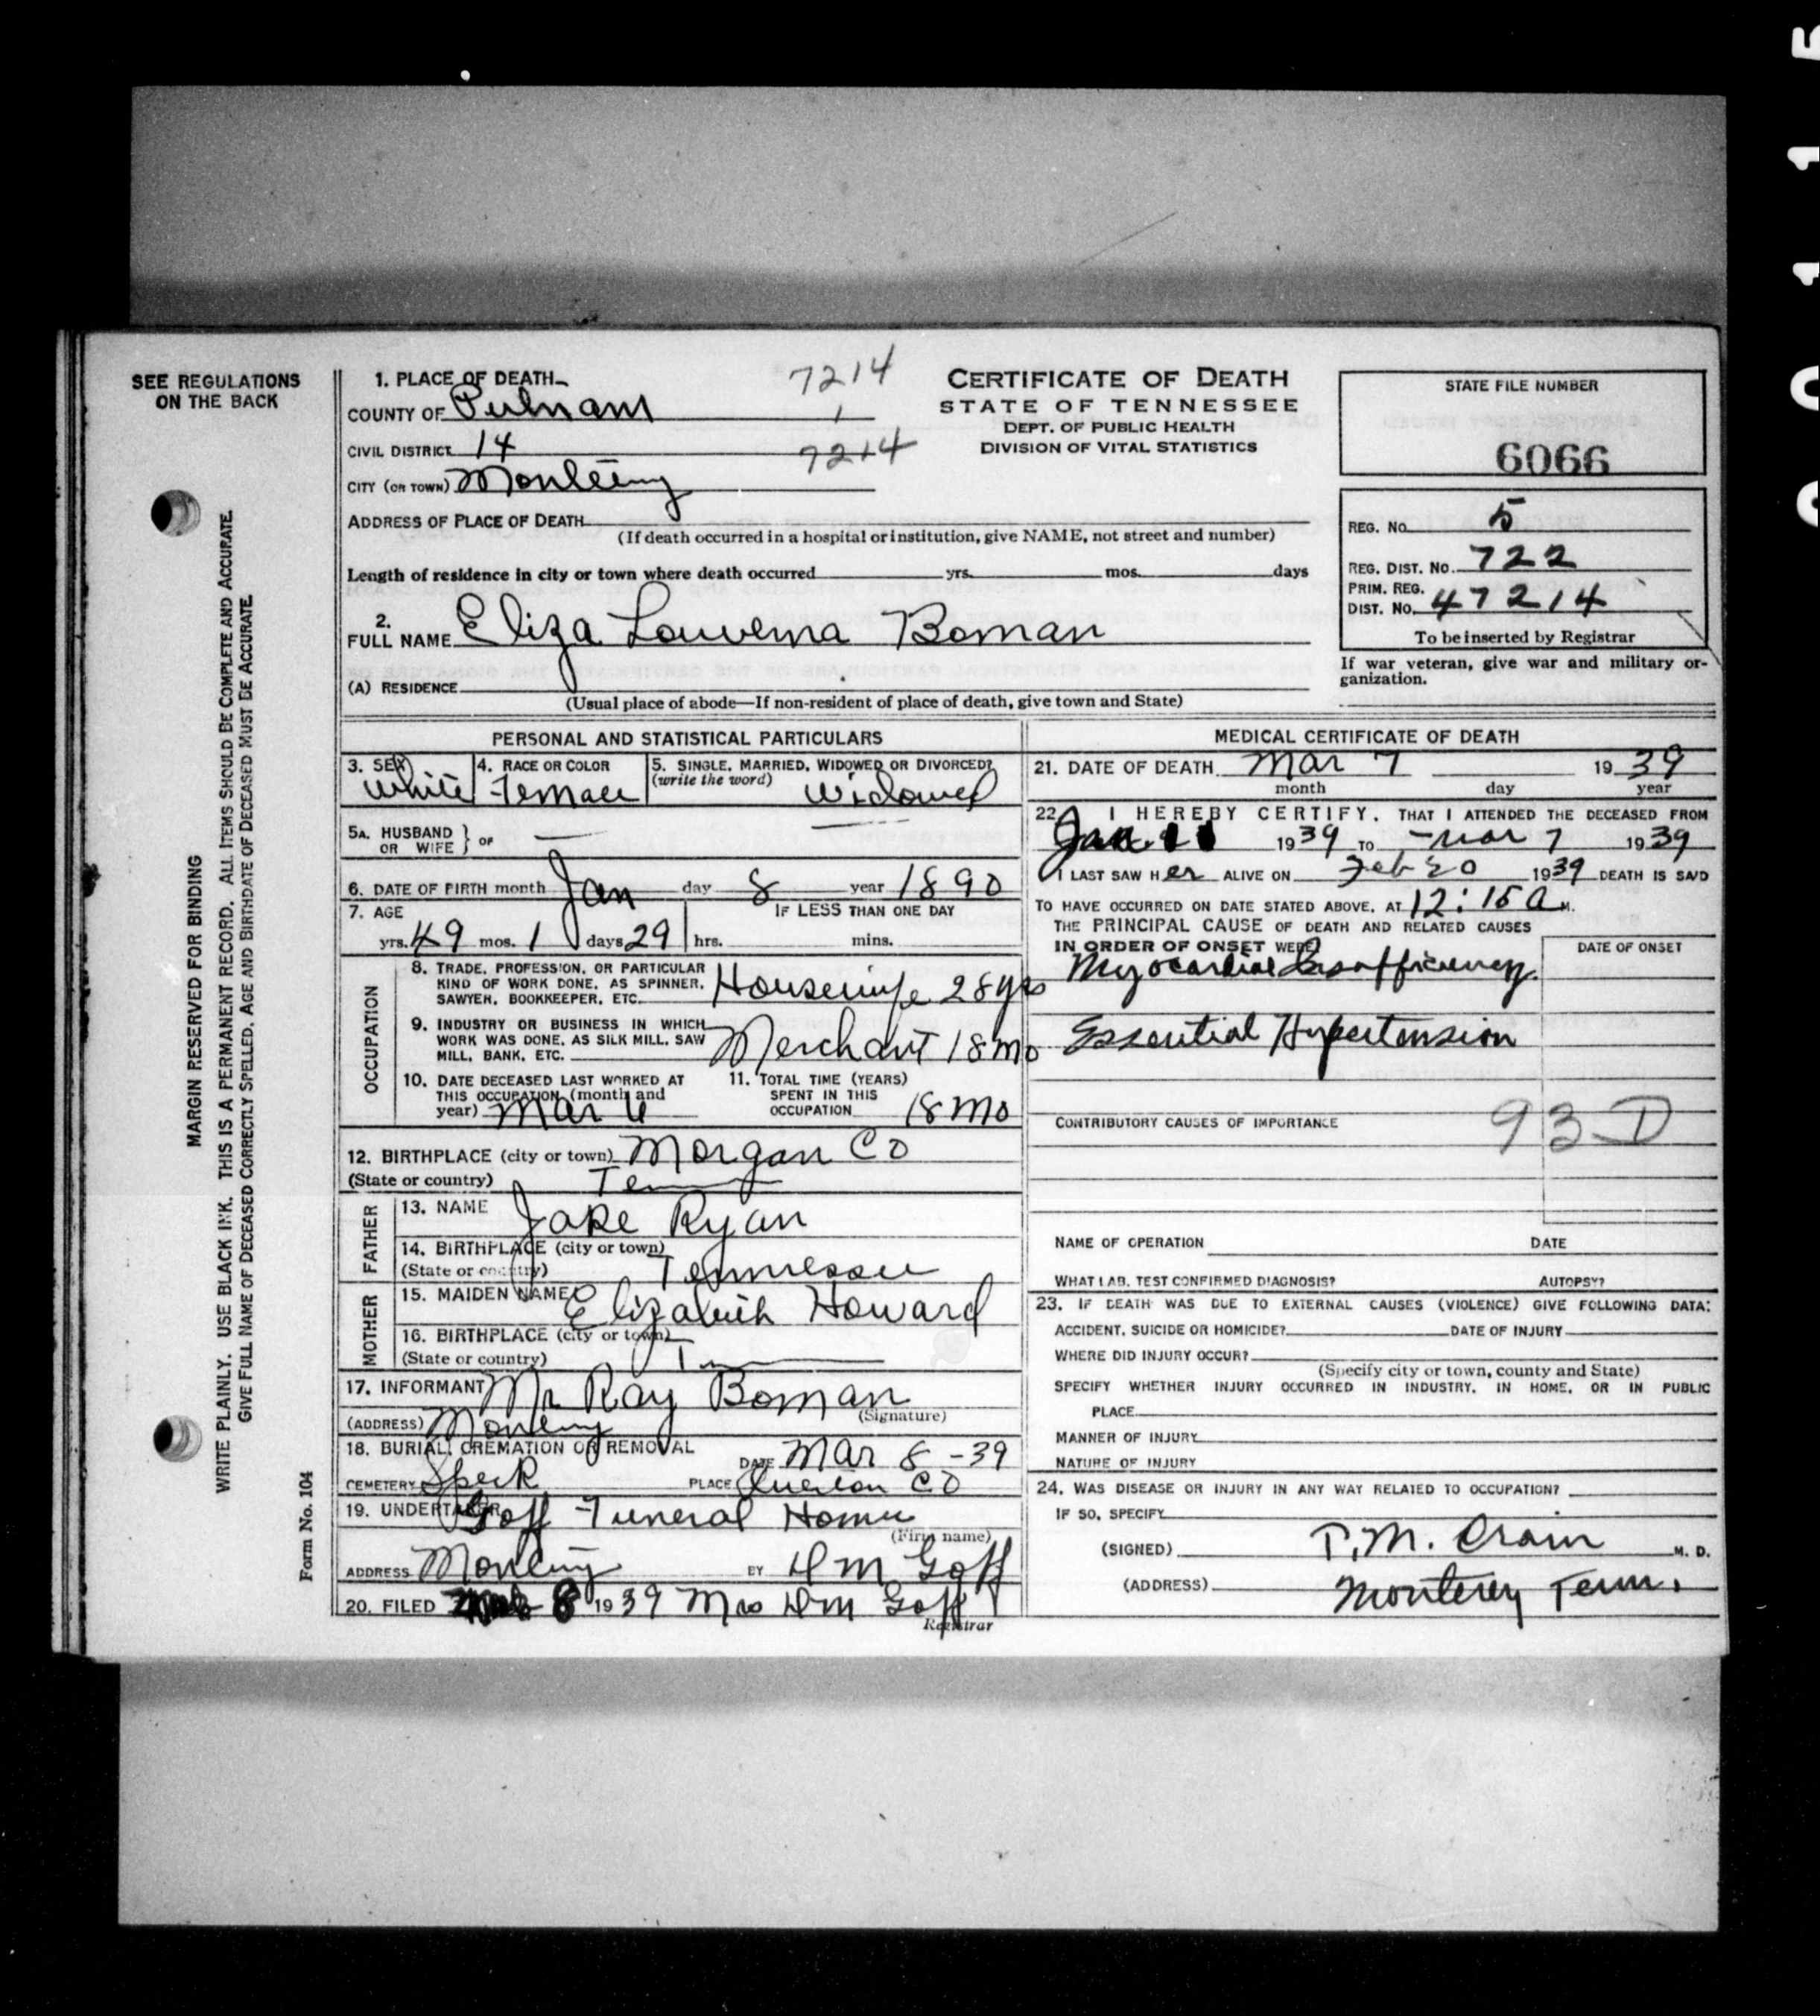 SEE REGULATIONS
ON THE BACK
MARGIN RESERVED FOR BINDING
WRITE PLAINLY. USE BLACK INK. THIS IS A PERMANENT RECORD. ALL ITEMS SHOULD BE COMPLETE AND ACCURATE.
GIVE FULL NAME OF DECEASED CORRECTLY SPELLED. AGE AND BIRTHDATE OF DECEASED MUST BE ACCURATE.
Form No. 104
1. PLACE OF DEATH 7214
COUNTY OF Putnam 1
CIVIL DISTRICT 14 7214
CITY (OR TOWN) Monterey
ADDRESS OF PLACE OF DEATH
(If death occurred in a hospital or institution, give NAME, not street and number)
Length of residence in city or town where death occurred yrs. mos. days
2. FULL NAME Eliza Louverna Boman
(A) RESIDENCE
(Usual place of abode—If non-resident of place of death, give town and State)
CERTIFICATE OF DEATH
STATE OF TENNESSEE
DEPT. OF PUBLIC HEALTH
DIVISION OF VITAL STATISTICS
STATE FILE NUMBER
6066
REG. NO. 5
REG. DIST. NO. 722
PRIM. REG.
DIST. NO. 47214
To be inserted by Registrar
If war veteran, give war and military or-
ganization.
PERSONAL AND STATISTICAL PARTICULARS
3. SEX White 4. RACE OR COLOR Female 5. SINGLE, MARRIED, WIDOWED OR DIVORCED? (write the word) Widowed
5A. HUSBAND OR WIFE } OF —
6. DATE OF BIRTH month Jan day 8 year 1890
7. AGE IF LESS THAN ONE DAY
yrs. 49 mos. 1 days 29 hrs. mins.
OCCUPATION
8. TRADE, PROFESSION, OR PARTICULAR
KIND OF WORK DONE, AS SPINNER,
SAWYER, BOOKKEEPER, ETC. Housewife 28 yrs
9. INDUSTRY OR BUSINESS IN WHICH
WORK WAS DONE, AS SILK MILL, SAW
MILL, BANK, ETC. Merchant 18 mo
10. DATE DECEASED LAST WORKED AT
THIS OCCUPATION (month and
year) Mar 6
11. TOTAL TIME (YEARS)
SPENT IN THIS
OCCUPATION 18 mo
12. BIRTHPLACE (city or town) Morgan Co
(State or country) Tenn
FATHER
13. NAME Jake Ryan
14. BIRTHPLACE (city or town)
(State or country) Tennessee
MOTHER
15. MAIDEN NAME Elizabeth Howard
16. BIRTHPLACE (city or town)
(State or country)
17. INFORMANT Mr Ray Boman
(Signature)
(ADDRESS) Monterey
18. BURIAL, CREMATION OR REMOVAL DATE Mar 8 - 39
CEMETERY Speck PLACE Overton Co
19. UNDERTAKER Goff Funeral Home
(Firm name)
ADDRESS Monterey BY D M Goff
20. FILED 8 1939 Mrs D M Goff
Registrar
MEDICAL CERTIFICATE OF DEATH
21. DATE OF DEATH Mar 7 1939
month day year
22. I HEREBY CERTIFY, THAT I ATTENDED THE DECEASED FROM
Jan. 1939 TO Mar 7 1939
I LAST SAW HER ALIVE ON Feb 20 1939 DEATH IS SAID
TO HAVE OCCURRED ON DATE STATED ABOVE, AT 12:15 A M.
THE PRINCIPAL CAUSE OF DEATH AND RELATED CAUSES
IN ORDER OF ONSET WERE: DATE OF ONSET
Myocardial Insufficiency
Essential Hypertension
CONTRIBUTORY CAUSES OF IMPORTANCE 93 D
NAME OF OPERATION DATE
WHAT LAB. TEST CONFIRMED DIAGNOSIS? AUTOPSY?
23. IF DEATH WAS DUE TO EXTERNAL CAUSES (VIOLENCE) GIVE FOLLOWING DATA:
ACCIDENT, SUICIDE OR HOMICIDE? DATE OF INJURY
WHERE DID INJURY OCCUR?
(Specify city or town, county and State)
SPECIFY WHETHER INJURY OCCURRED IN INDUSTRY, IN HOME, OR IN PUBLIC
PLACE
MANNER OF INJURY
NATURE OF INJURY
24. WAS DISEASE OR INJURY IN ANY WAY RELATED TO OCCUPATION?
IF SO, SPECIFY
(SIGNED) T. M. Crain M. D.
(ADDRESS) Monterey Tenn.